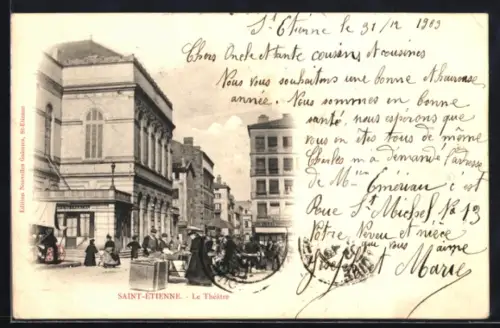 St Etienne le 31/12 1903
Chers Oncle et tante cousins et cousines
Nous vous souhaitons une bonne et heureuse
année. Nous sommes en bonne
santé, nous espérons que
vous en êtes tous de même
Charles m'a demandé l'adresse
de Mme c'est
Rue St Michel No 13
Votre Neveu et nièce
que vous aime
et Marie
Edition Nouvelles Galeries, St-Etienne
SAINT-ÉTIENNE. - Le Théâtre